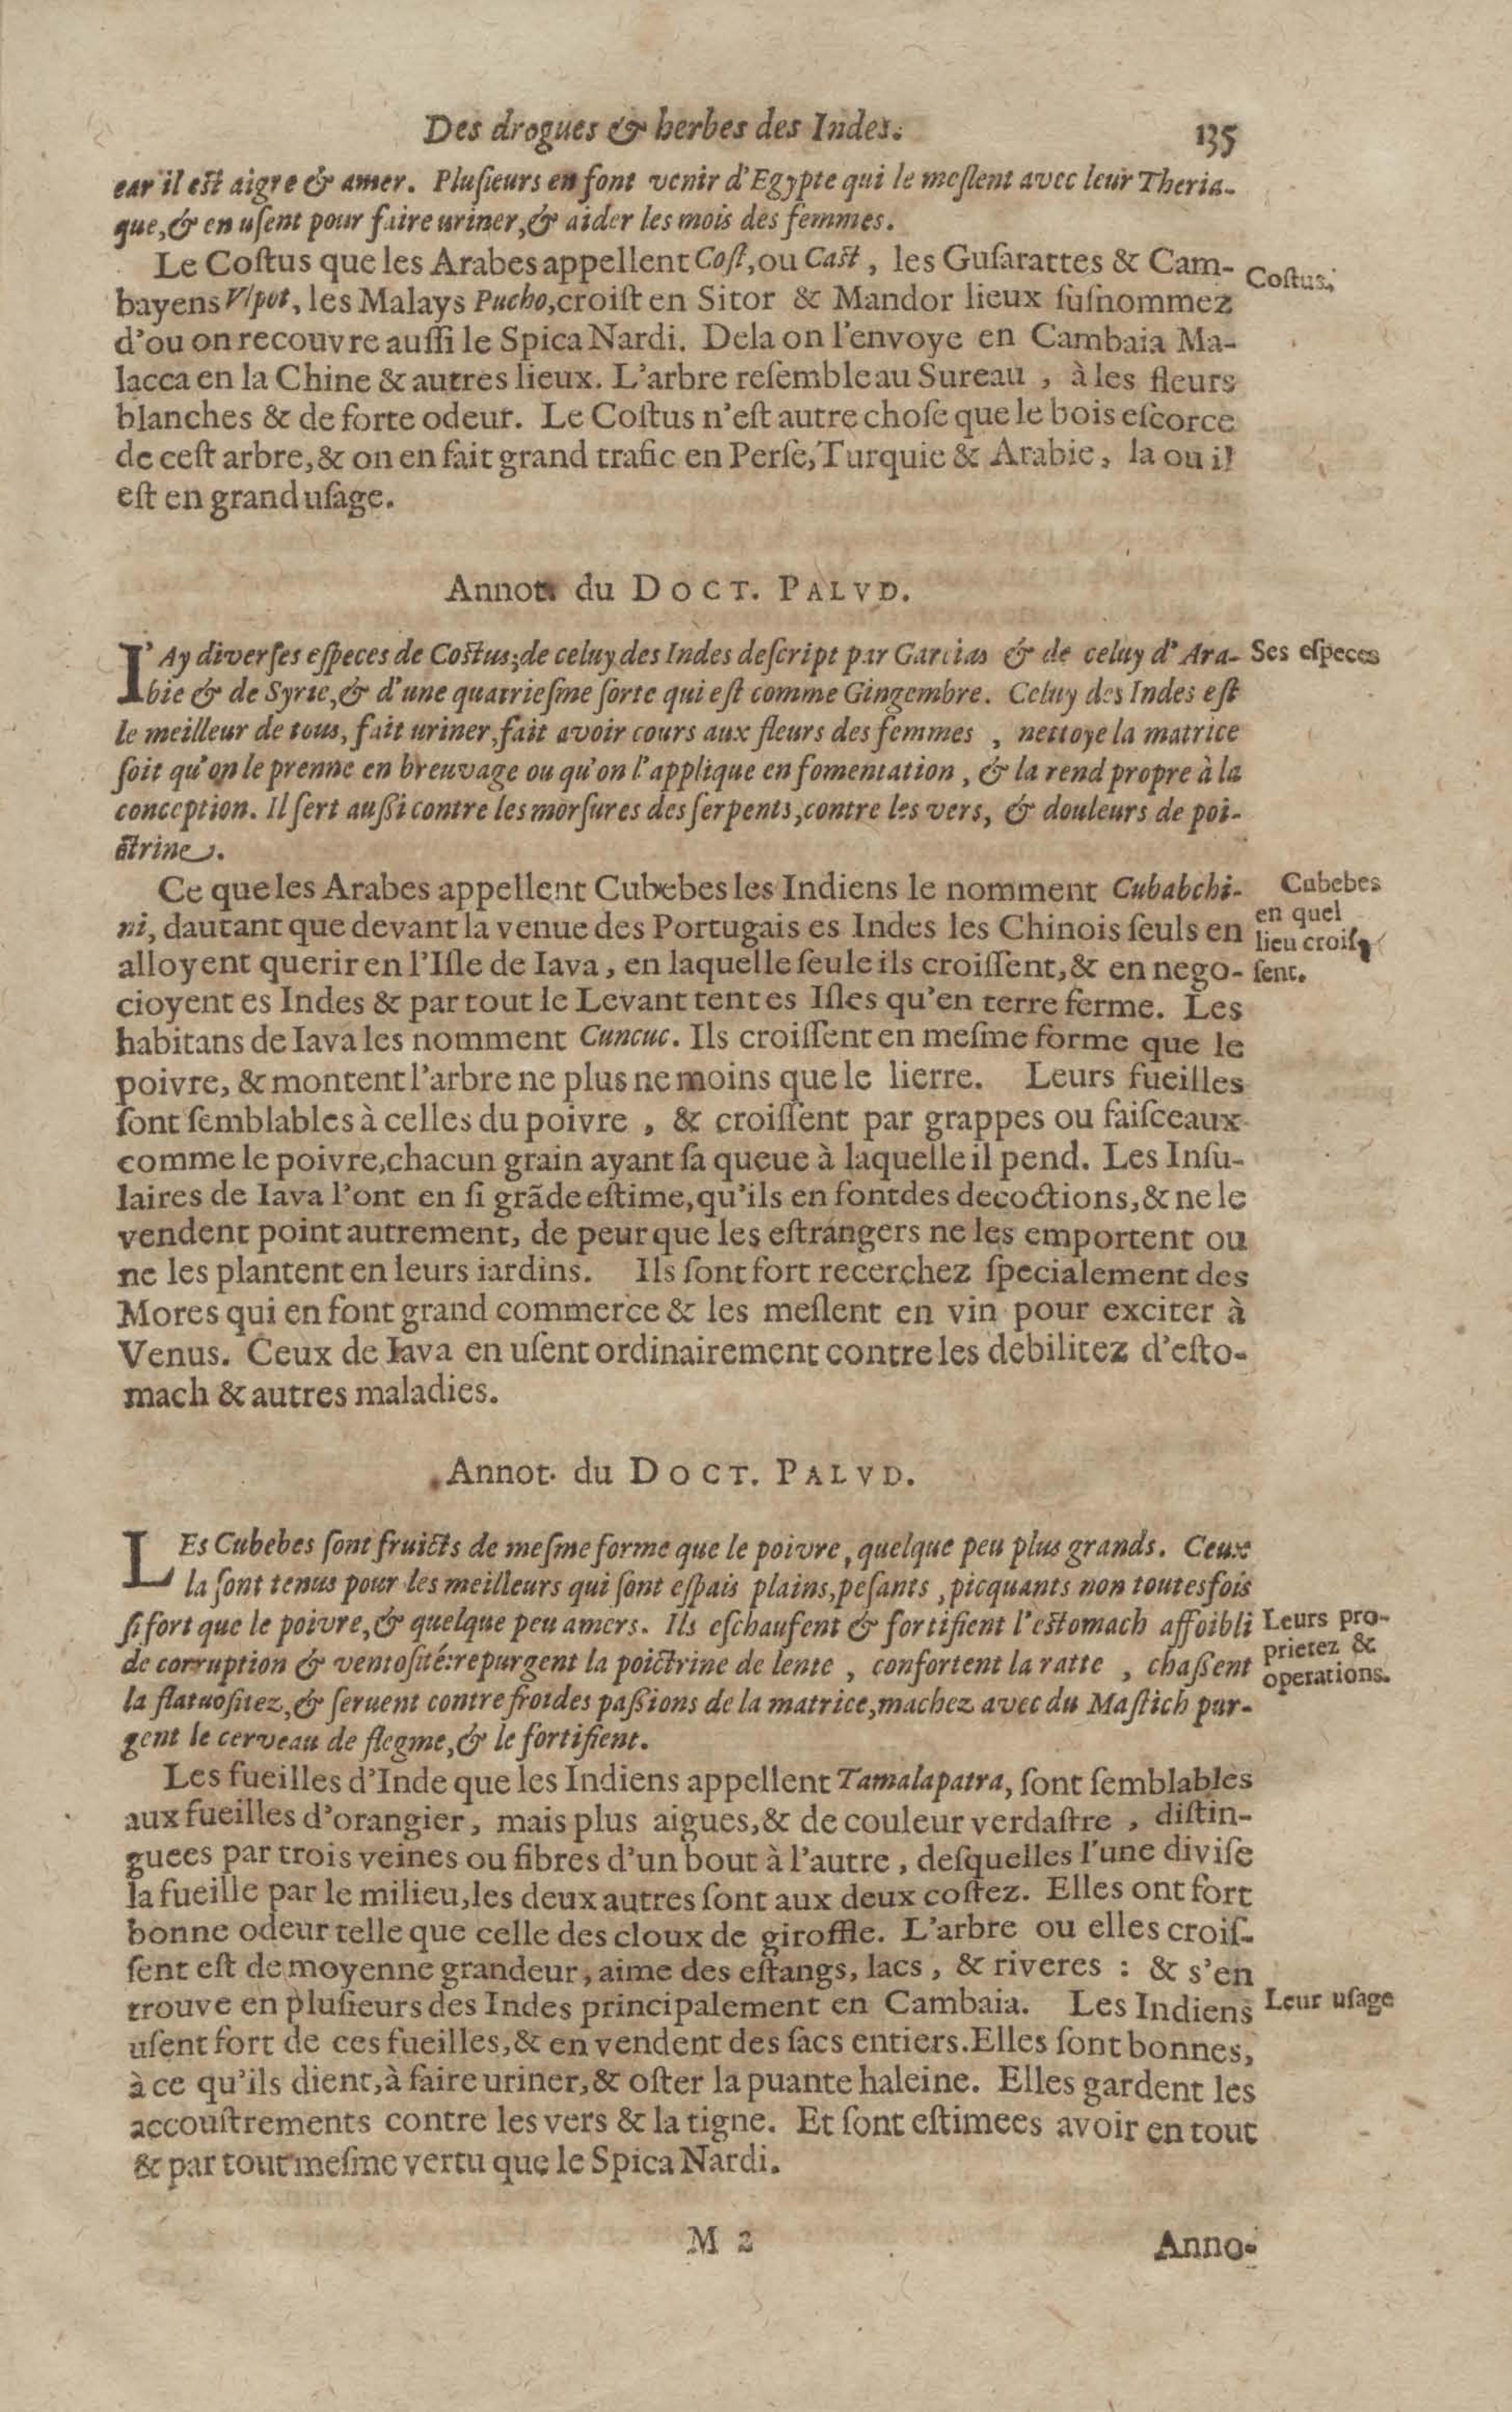 Des drogues & herbes des Indes. 135
car il est aigre & amer. Pluſieurs en font venir d'Egypte qui le meſlent avec leur Theria-
que,& en uſent pour faire uriner,& aider les mois des femmes.
Le Coſtus que les Arabes appellent Coſt, ou Cast, les Guſarattes & Cam-
Coſtus.
bayens Vſpot, les Malays Pucho, croiſt en Sitor & Mandor lieux ſuſnommez
d'ou on recouvre auſſi le Spica Nardi. Dela on l'envoye en Cambaia Ma-
lacca en la Chine & autres lieux. L'arbre reſemble au Sureau, à les fleurs
blanches & de forte odeur. Le Coſtus n'eſt autre choſe que le bois eſcorce
de ceſt arbre,& on en fait grand trafic en Perſe, Turquie & Arabie, la ou il
eſt en grand uſage.
Annot. du DOCT. PALVD.
I'Ay diverſes eſpeces de Costus; de celuy des Indes deſcript par Garcias & de celuy d'Ara-
Ses eſpeces
bie & de Syrie,& d'une quatrieſme ſorte qui eſt comme Gingembre. Celuy des Indes eſt
le meilleur de tous, fait uriner, fait avoir cours aux fleurs des femmes, nettoye la matrice
ſoit qu'on le prenne en breuvage ou qu'on l'applique en fomentation, & la rend propre à la
conception. Il ſert auſſi contre les morſures des ſerpents, contre les vers, & douleurs de poi-
ctrine.
Ce que les Arabes appellent Cubebes les Indiens le nomment Cubabchi-
Cubebes
ni, dautant que devant la venue des Portugais es Indes les Chinois ſeuls en
en quel
lieu croiſ-
alloyent querir en l'Iſle de Iava, en laquelle ſeule ils croiſſent,& en nego-
ſent.
cioyent es Indes & par tout le Levant tent es Iſles qu'en terre ferme. Les
habitans de Iava les nomment Cuncuc. Ils croiſſent en meſme forme que le
poivre, & montent l'arbre ne plus ne moins que le lierre. Leurs fueilles
ſont ſemblables à celles du poivre, & croiſſent par grappes ou faiſceaux
comme le poivre, chacun grain ayant ſa queue à laquelle il pend. Les Inſu-
laires de Iava l'ont en ſi grãde eſtime, qu'ils en font des decoctions,& ne le
vendent point autrement, de peur que les eſtrangers ne les emportent ou
ne les plantent en leurs iardins. Ils ſont fort recerchez ſpecialement des
Mores qui en font grand commerce & les meſlent en vin pour exciter à
Venus. Ceux de Iava en uſent ordinairement contre les debilitez d'eſto-
mach & autres maladies.
Annot. du DOCT. PALVD.
LEs Cubebes ſont fruicts de meſme forme que le poivre, quelque peu plus grands. Ceux
la ſont tenus pour les meilleurs qui ſont eſpais plains, peſants, picquants non toutesfois
ſi fort que le poivre,& quelque peu amers. Ils eſchaufent & fortifient l'estomach affoibli
Leurs pro-
de corruption & ventoſité: repurgent la poictrine de lente, confortent la ratte, chaſſent
prietez &
operations.
la flatuoſitez,& ſeruent contre froides paſſions de la matrice, machez avec du Maſtich pur-
gent le cerveau de flegme,& le fortifient.
Les fueilles d'Inde que les Indiens appellent Tamalapatra, ſont ſemblables
aux fueilles d'orangier, mais plus aigues,& de couleur verdaſtre, diſtin-
guees par trois veines ou fibres d'un bout à l'autre, deſquelles l'une diviſe
la fueille par le milieu, les deux autres ſont aux deux coſtez. Elles ont fort
bonne odeur telle que celle des cloux de giroffle. L'arbre ou elles croiſ-
ſent eſt de moyenne grandeur, aime des eſtangs, lacs, & riveres : & s'en
trouve en pluſieurs des Indes principalement en Cambaia. Les Indiens
Leur uſage
uſent fort de ces fueilles,& en vendent des ſacs entiers. Elles ſont bonnes,
à ce qu'ils dient, à faire uriner,& oſter la puante haleine. Elles gardent les
accouſtrements contre les vers & la tigne. Et ſont eſtimees avoir en tout
& par tout meſme vertu que le Spica Nardi.
M 2
Anno-